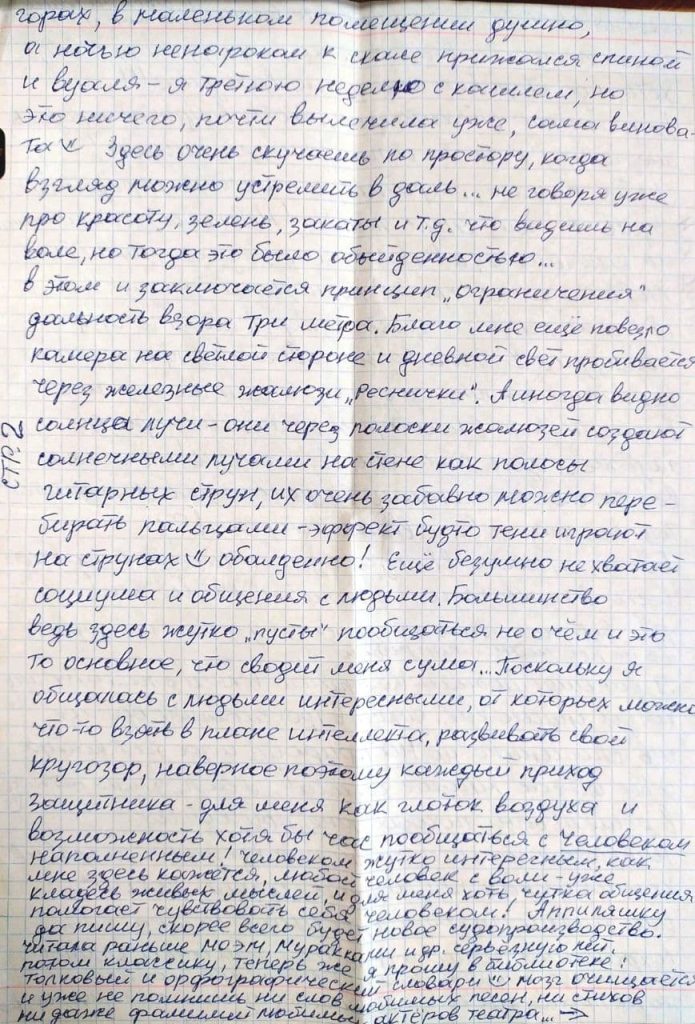 горах, в маленьком помещении душно,
а ночью ненароком к скале прижался спиной
и вуаля - я третюю неделю с кашлем, но
это ничего, почти вылечила уже, сама винова-
та Здесь очень скучаешь по простору, когда
взгляд можно устремить в даль... не говоря уже
про красоту, зелень, закаты и т.д. что видишь на
воле, но тогда это было обыйденностью...
в этом и заключается принцип „ограничения"
дальность взора три метра. Благо мне ещё повезло
камера на светлой стороне и дневной свет пробивается
через железные жалюзи „Реснички". А иногда видно
солнца лучи - они через полоски жалюзей создают
солнечными лучами на стене как полосы
гитарных струн, их очень забавно можно пере-
бирать пальцами - эффект будто тени играют
на струнах обалденно! Ещё безумно не хватает
социума и общения с людьми. Большинство
ведь здесь жутко „пусты" пообщаться не о чём и это
то основное, что сводит меня с ума... Поскольку я
общалась с людьми интересными, от которых можно
что-то взять в плане интеллекта, развивать свой
кругозор, наверное поэтому каждый приход
защитника - для меня как глоток воздуха и
возможность хотя бы час пообщаться с человеком
наполненным! человеком жутко интересным, как
мне здесь кажется, любой человек с воли - уже
кладезь живых мыслей, и для меня хоть чутка общения
помогает чувствовать себя человеком! Аппиляшку
да пишу, скорее всего будет новое судопроизводство.
Читала раньше Моэм, Мураками и др. серьёзную лит.
потом классику, теперь же я прошу в библиотеке:
толковый и орфографический словари мозг очищается
и уже не помнишь ни слов любимых песен, ни стихов
ни даже фамилии любимых актёров театра... →
СТР. 2